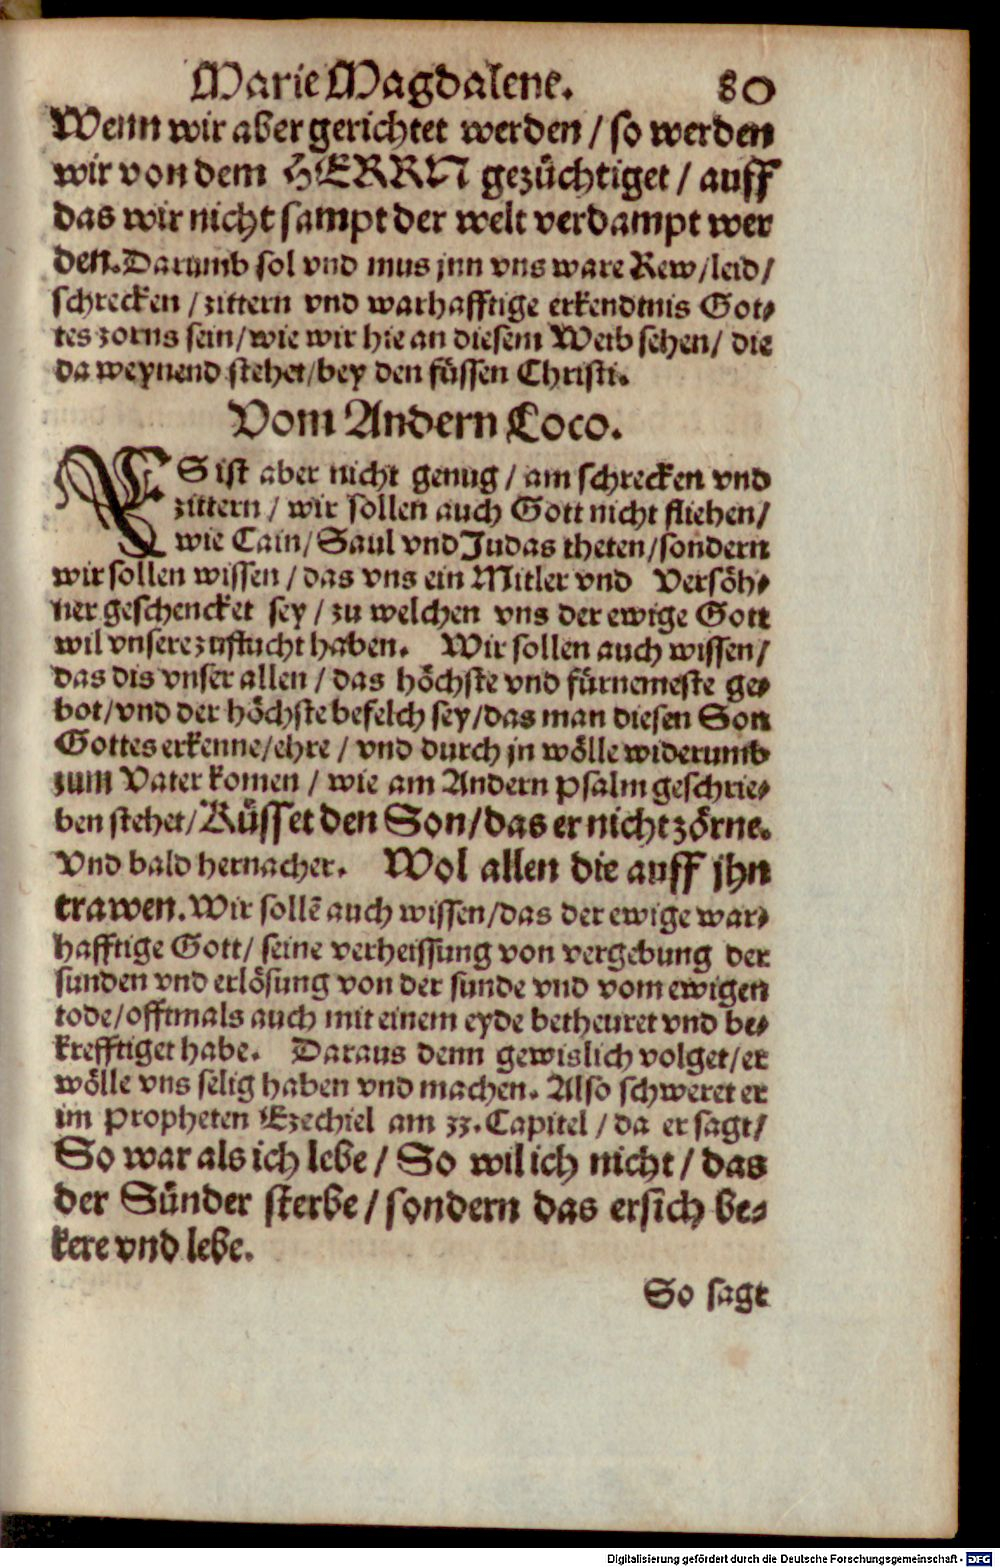 Marie Magdalene. 80
Wenn wir aber gerichtet werden / so werden
wir von dem HERRN gezüchtiget / auff
das wir nicht sampt der welt verdampt wer
den. Darumb sol vnd mus jnn vns ware Rew / leid /
schrecken / zittern vnd warhafftige erkendtnis Got⸗
tes zorns sein / wie wir hie an diesem Weib sehen / die
da weynend stehet / bey den füssen Christi.
Vom Andern Loco.
ES ist aber nicht genug / am schrecken vnd
zittern / wir sollen auch Gott nicht fliehen /
wie Cain / Saul vnd Judas theten / sondern
wir sollen wissen / das vns ein Mitler vnd Versöh⸗
ner geschencket sey / zu welchen vns der ewige Gott
wil vnsere zuflucht haben. Wir sollen auch wissen /
das dis vnser allen / das höchste vnd fürnemeste ge⸗
bot / vnd der höchste befelch sey / das man diesen Son
Gottes erkenne / ehre / vnd durch jn wölle widerumb
zum Vater komen / wie am Andern Psalm geschrie⸗
ben stehet / Küsset den Son / das er nicht zörne.
Vnd bald hernacher. Wol allen die auff jhn
trawen. Wir sollē auch wissen / das der ewige war⸗
hafftige Gott / seine verheissung von vergebung der
sunden vnd erlösung von der sunde vnd vom ewigen
tode / offtmals auch mit einem eyde betheuret vnd be⸗
krefftiget habe. Daraus denn gewislich volget / er
wölle vns selig haben vnd machen. Also schweret er
im Propheten Ezechiel am 33. Capitel / da er sagt /
So war als ich lebe / So wil ich nicht / das
der Sünder sterbe / sondern das er sich be⸗
kere vnd lebe.
So sagt
Digitalisierung gefördert durch die Deutsche Forschungsgemeinschaft - DFG